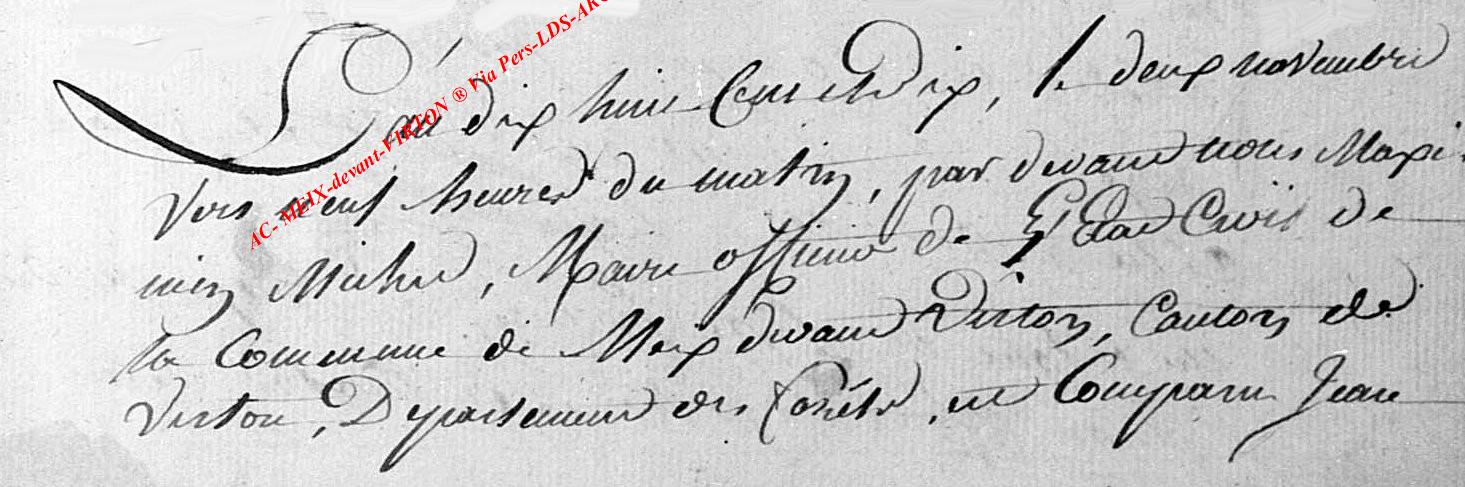 L'an dix huit Cent et Dix, le deux novembre
vers neuf heures du matin, par devant nous Maxi-
mien Michel, Maire officier de L'Etat Civil de
la Commune de Meix devant Virton, Canton de
Virton, Département des forêts, est Comparu Jean
AC- MEIX-devant-VIRTON ® Via Pers-LDS-ARC